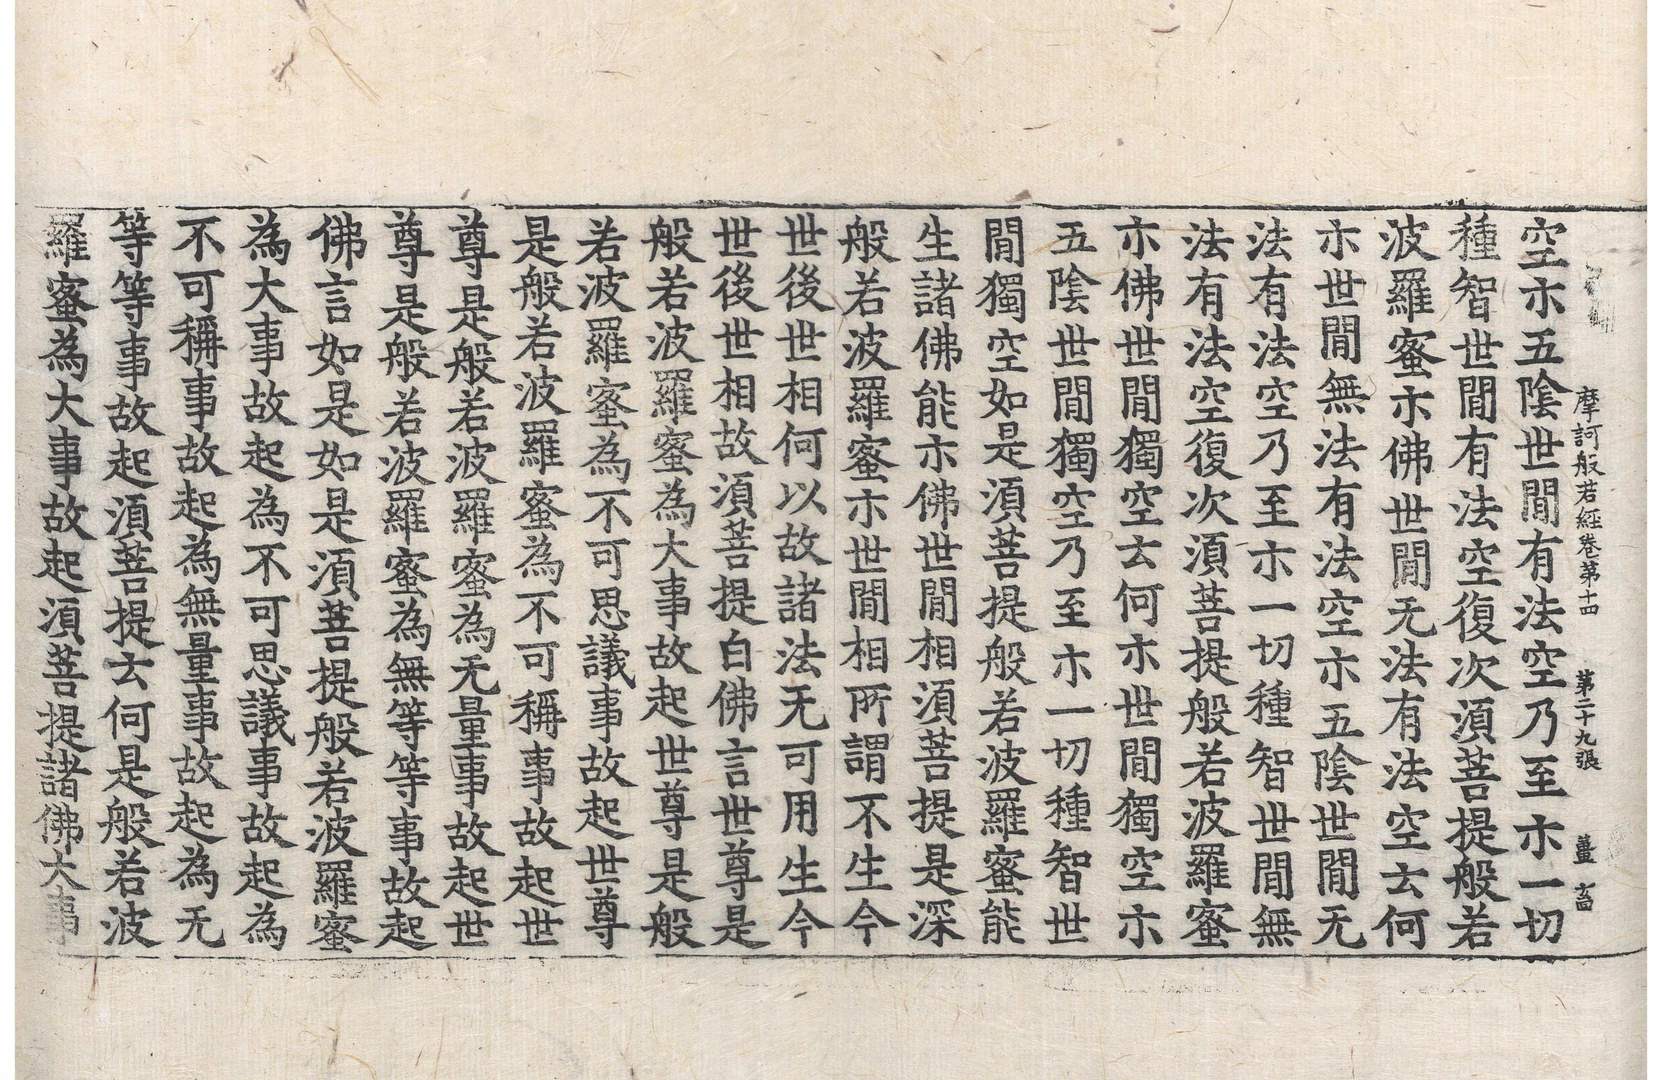 摩訶般若經卷第十四 第二十九張 薑
空示五陰世間有法空乃至示一切
種智世間有法空復次須菩提般若
波羅蜜示佛世間无法有法空云何
示世間無法有法空示五陰世間无
法有法空乃至示一切種智世間無
法有法空復次須菩提般若波羅蜜
示佛世間獨空云何示世間獨空示
五陰世間獨空乃至示一切種智世
間獨空如是須菩提般若波羅蜜能
生諸佛能示佛世間相須菩提是深
般若波羅蜜示世間相所謂不生今
世後世相何以故諸法无可用生今
世後世相故須菩提白佛言世尊是
般若波羅蜜為大事故起世尊是般
若波羅蜜為不可思議事故起世尊
是般若波羅蜜為不可稱事故起世
尊是般若波羅蜜為无量事故起世
尊是般若波羅蜜為無等等事故起
佛言如是如是須菩提般若波羅蜜
為大事故起為不可思議事故起為
不可稱事故起為無量事故起為无
等等事故起須菩提云何是般若波
羅蜜為大事故起須菩提諸佛大事